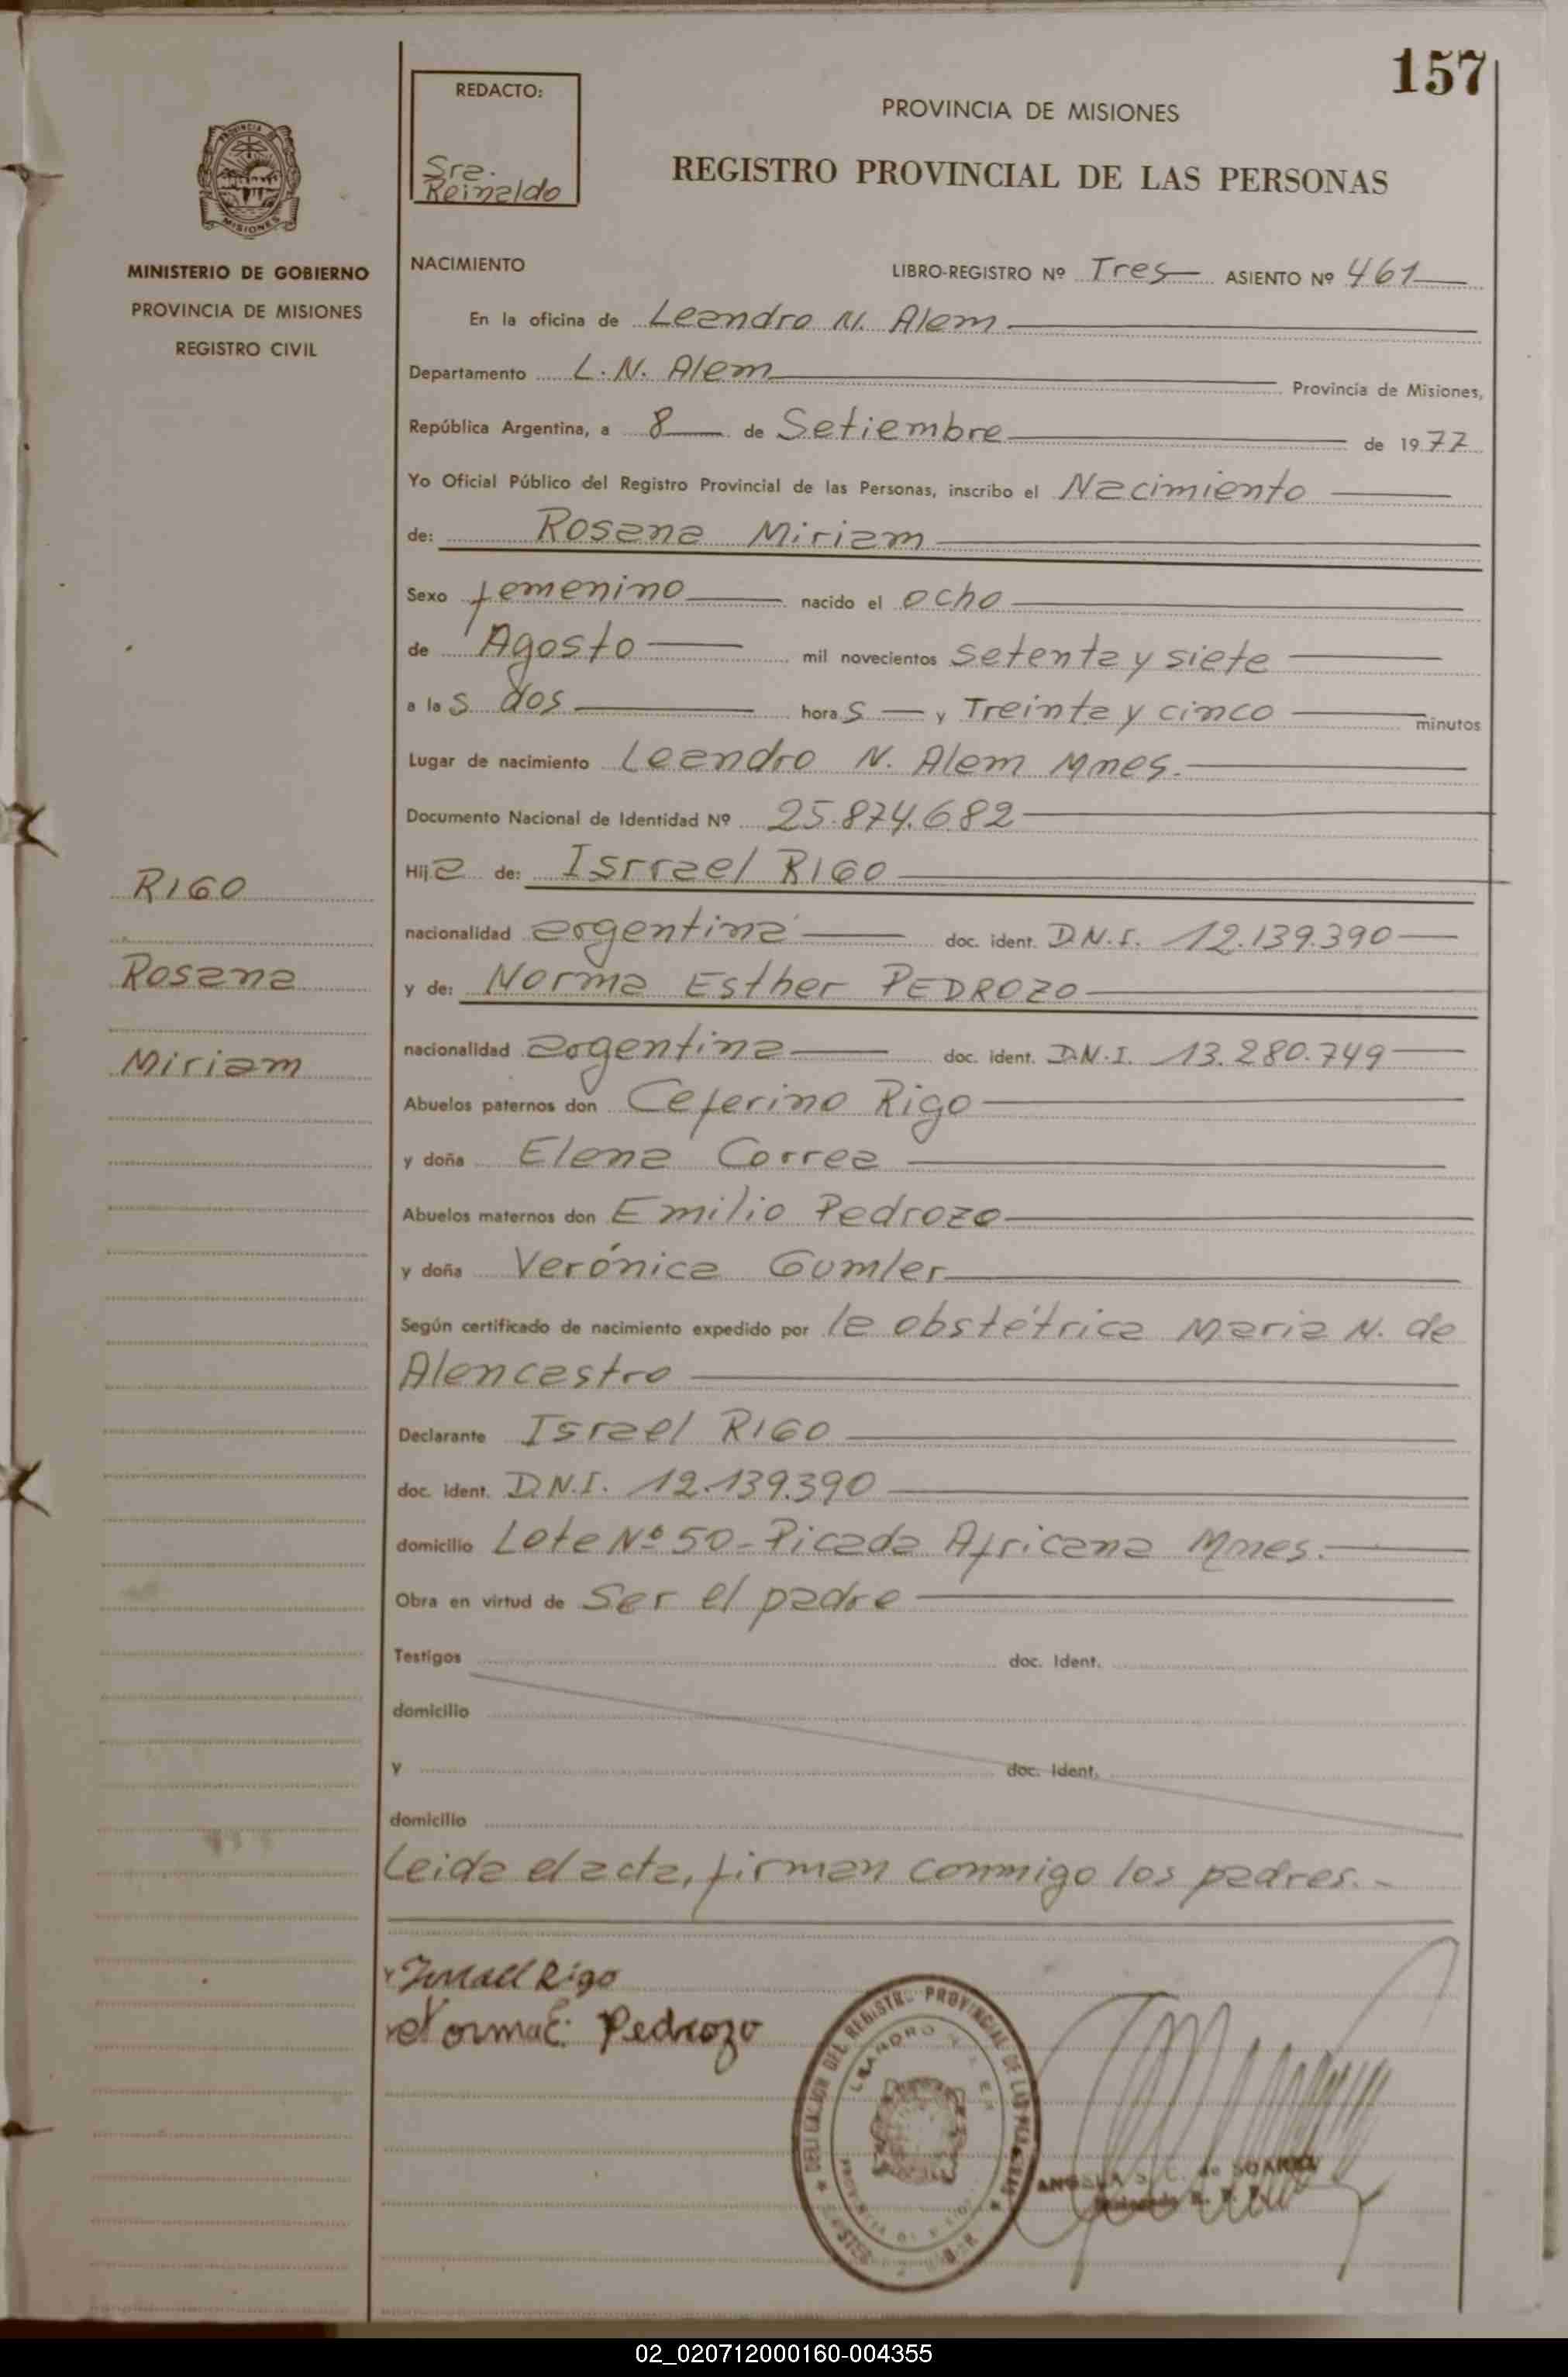 157
REDACTO:
Sra.
Reinaldo
PROVINCIA DE MISIONES
REGISTRO PROVINCIAL DE LAS PERSONAS
PROVINCIA DE
MISIONES
MINISTERIO DE GOBIERNO
PROVINCIA DE MISIONES
REGISTRO CIVIL
RIGO
Rosana
Miriam
NACIMIENTO LIBRO-REGISTRO Nº Tres ASIENTO Nº 461
En la oficina de Leandro N. Alem
Departamento L. N. Alem Provincia de Misiones,
República Argentina, a 8 de Setiembre de 1977
Yo Oficial Público del Registro Provincial de las Personas, inscribo el Nacimiento
de: Rosana Miriam
Sexo femenino nacido el ocho
de Agosto mil novecientos setenta y siete
a las dos horas y Treinta y cinco minutos
Lugar de nacimiento Leandro N. Alem Mnes.
Documento Nacional de Identidad Nº 25.874.682
Hija de: Isrrael RIGO
nacionalidad argentina doc. ident. D.N.I. 12.139.390
y de: Norma Esther PEDROZO
nacionalidad argentina doc. ident. D.N.I. 13.280.749
Abuelos paternos don Ceferino Rigo
y doña Elena Correa
Abuelos maternos don Emilio Pedrozo
y doña Verónica Gumler
Según certificado de nacimiento expedido por la obstétrica Maria N. de
Alencastro
Declarante Israel RIGO
doc. ident. D.N.I. 12.139.390
domicilio Lote Nº 50 - Picada Africana Mnes.
Obra en virtud de Ser el padre
Testigos doc. Ident.
domicilio
y doc. Ident.
domicilio
Leida el acta, firman conmigo los padres.-
Rigo
Norma E. Pedrozo
DELEGACION DEL REGISTRO PROVINCIAL DE LAS PERSONAS
LEANDRO N. ALEM
ANGELA S. C. de SOAREZ
02_020712000160-004355